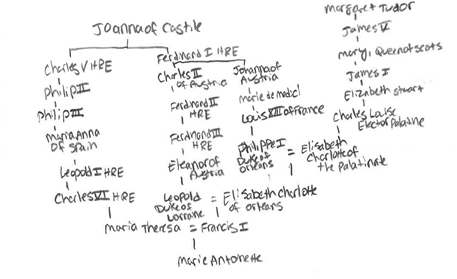 Joanna of Castile
Charles V HRE
Philip II
Philip III
Maria Anna
of Spain
Leopold I HRE
Charles VI HRE
Maria Theresa = Francis I
Marie Antonette
Ferdnard I HRE
Charles II
of Austria
Ferdnard II
HRE
Ferdnard III
HRE
Eleanor of
Austria
Leopold
Duke of
Lorraine
= Elisabeth Charlotte
of Orleans
Johanna of
Austria
Marie de Medici
Louis XIII of France
Philippe I
Duke of
Orleans
= Elisabeth
Charlotte of
the Palatinate
Margaret Tudor
James V
Mary, Queen of Scots
James I
Elizabeth Stuart
Charles Louis
Elector Palatine